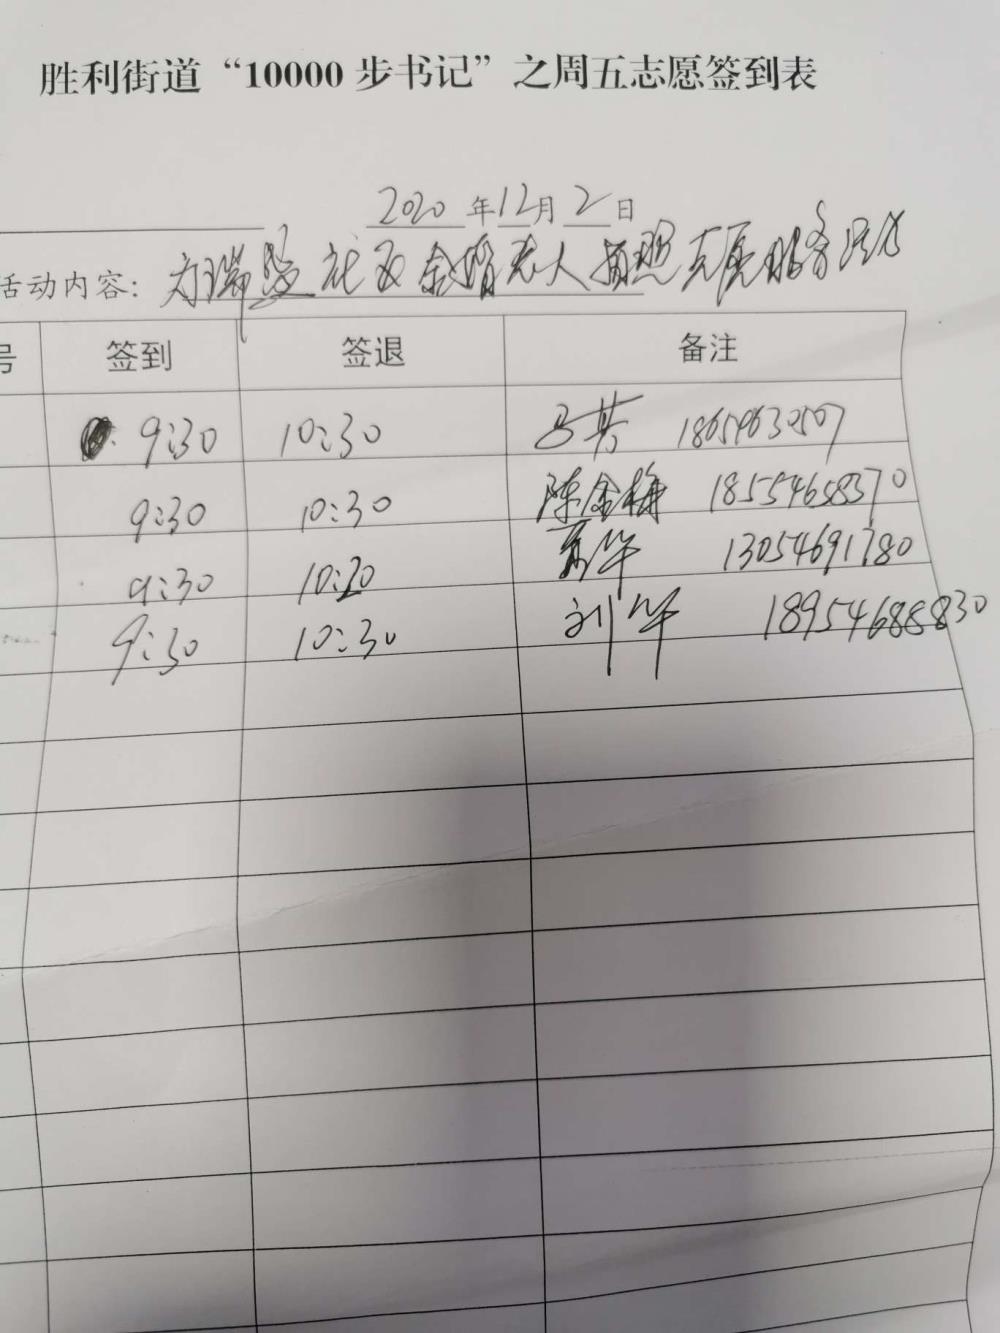 胜利街道“10000步书记”之周五志愿签到表
2020年12月2日
活动内容：为瑞园社区金婚老人拍照志愿服务活动
号 签到 签退 备注
9:30 10:30 马芳 18654630507
9:30 10:30 陈金梅 18554658370
9:30 10:20 华 13054691780
9:30 10:30 刘华 18954688830